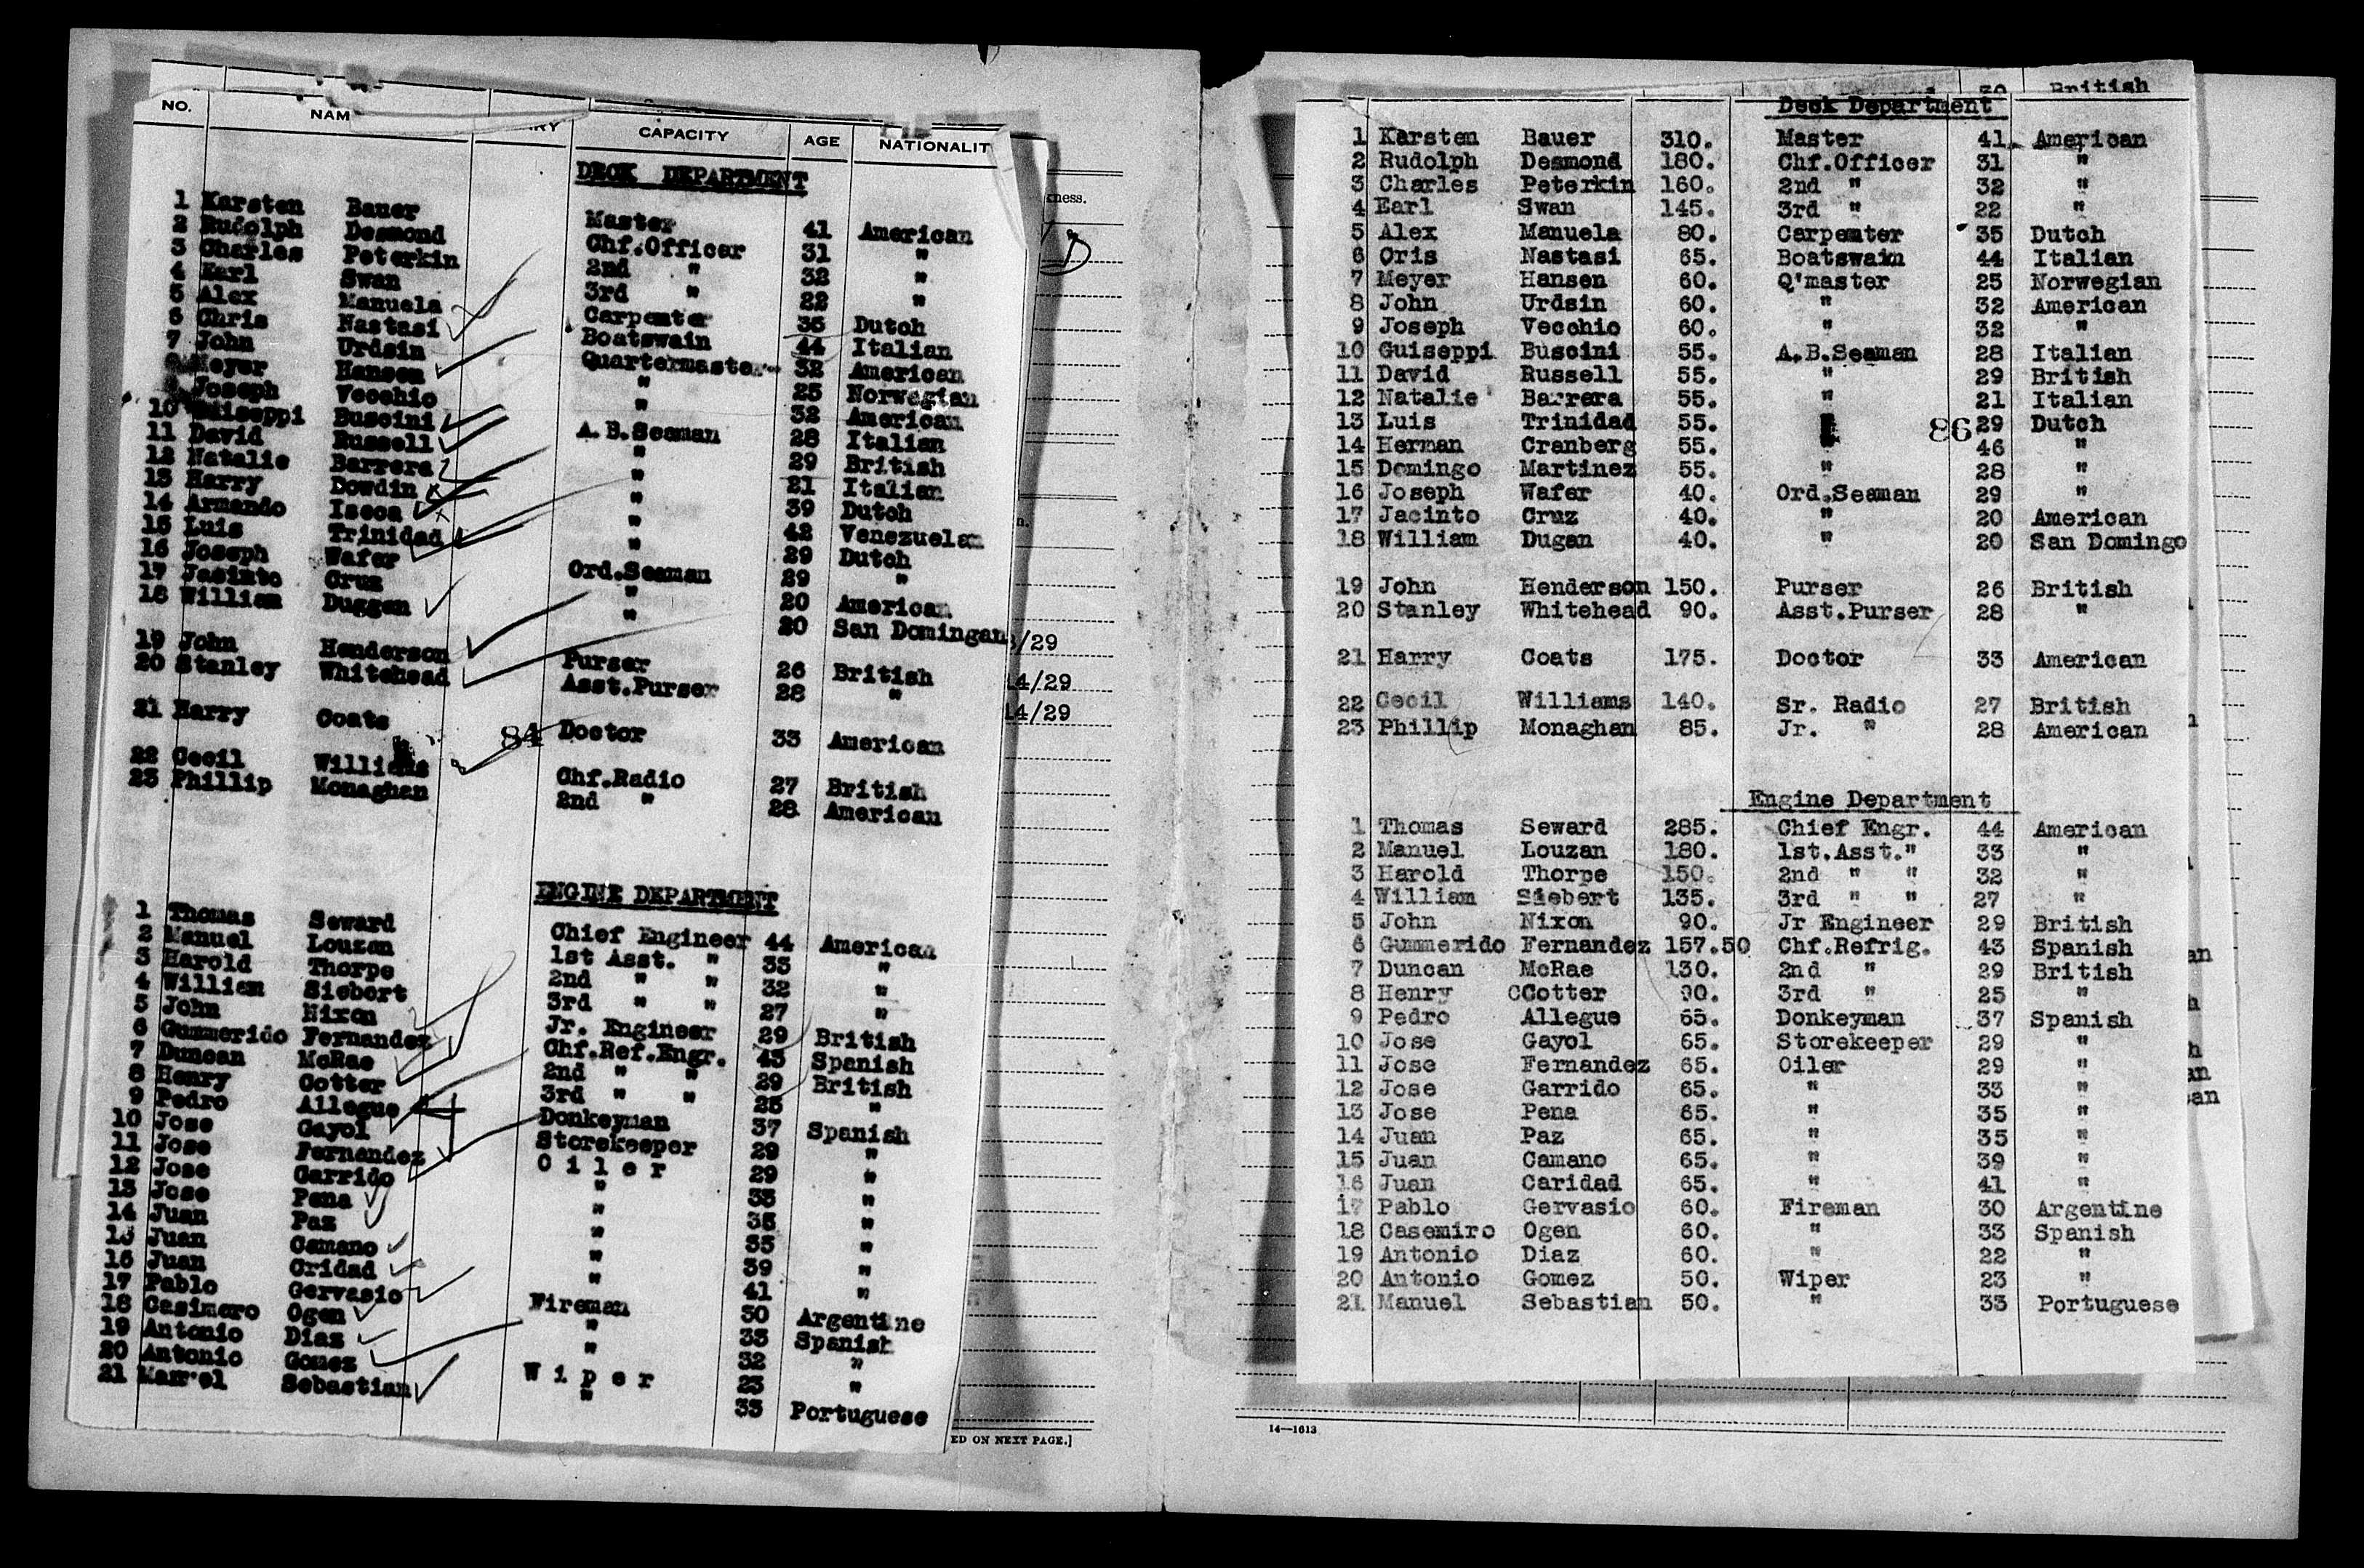 NO. NAM ARY CAPACITY AGE NATIONALIT
DECK DEPARTMENT
1 Karsten Bauer Master 41 American
2 Rudolph Desmond Chf.Officer 31 "
3 Charles Peterkin 2nd " 32 "
4 Earl Swan 3rd " 22 "
5 Alex Manuela Carpenter 35 Dutch
6 Chris Nastasi Boatswain 44 Italian
7 John Urdsin Quartermaster 32 American
8 Meyer Hansen " 25 Norwegian
9 Joseph Vecchio " 32 American
10 Guiseppi Buscini A.B.Seaman 28 Italian
11 David Russell " 29 British
12 Natalie Barrera " 21 Italian
13 Harry Dowdin " 39 Dutch
14 Armando Iseca " 42 Venezuelan
15 Luis Trinidad " 29 Dutch
16 Joseph Wafer Ord.Seaman 29 "
17 Jacinto Cruz " 20 American
18 William Duggen " 20 San Domingan
19 John Henderson Purser 26 British
20 Stanley Whitehead Asst.Purser 28 "
21 Harry Coats 84 Doctor 33 American
22 Cecil Williams Chf.Radio 27 British
23 Phillip Monaghan 2nd " 28 American
ENGINE DEPARTMENT
1 Thomas Seward Chief Engineer 44 American
2 Manuel Louzan 1st Asst. " 33 "
3 Harold Thorpe 2nd " " 32 "
4 William Siebert 3rd " " 27 "
5 John Nixon Jr. Engineer 29 British
6 Gummerido Fernandez Chf.Ref.Engr. 43 Spanish
7 Duncan McRae 2nd " " 29 British
8 Henry Cotter 3rd " " 25 "
9 Pedro Allegue Donkeyman 37 Spanish
10 Jose Gayol Storekeeper 29 "
11 Jose Fernandez O i l e r 29 "
12 Jose Garrido " 33 "
13 Jose Pena " 35 "
14 Juan Paz " 35 "
15 Juan Camano " 39 "
16 Juan Cridad " 41 "
17 Pablo Gervasio Fireman 30 Argentine
18 Casimero Ogen " 33 Spanish
19 Antonio Diaz " 32 "
20 Antonio Gomez W i p e r 23 "
21 Sebastian " 33 Portuguese
kness.
D
n.
/29
14/29
14/29
ED ON NEXT PAGE.]
30 British
Deck Department
1 Karsten Bauer 310. Master 41 American
2 Rudolph Desmond 180. Chf.Officer 31 "
3 Charles Peterkin 160. 2nd " 32 "
4 Earl Swan 145. 3rd " 22 "
5 Alex Manuela 80. Carpenter 35 Dutch
6 Cris Nastasi 65. Boatswain 44 Italian
7 Meyer Hansen 60. Q'master 25 Norwegian
8 John Urdsin 60. " 32 American
9 Joseph Vecchio 60. " 32 "
10 Guiseppi Buscini 55. A.B.Seaman 28 Italian
11 David Russell 55. " 29 British
12 Natalie Barrera 55. " 21 Italian
13 Luis Trinidad 55. 86 29 Dutch
14 Herman Cranberg 55. 46 "
15 Domingo Martinez 55. " 28 "
16 Joseph Wafer 40. Ord.Seaman 29 "
17 Jacinto Cruz 40. " 20 American
18 William Dugan 40. " 20 San Domingo
19 John Henderson 150. Purser 26 British
20 Stanley Whitehead 90. Asst.Purser 28 "
21 Harry Coats 175. Doctor 33 American
22 Cecil Williams 140. Sr. Radio 27 British
23 Phillip Monaghan 85. Jr. " 28 American
Engine Department
1 Thomas Seward 285. Chief Engr. 44 American
2 Manuel Louzan 180. 1st.Asst." 33 "
3 Harold Thorpe 150. 2nd " " 32 "
4 William Siebert 135. 3rd " " 27 "
5 John Nixon 90. Jr Engineer 29 British
6 Gummerido Fernandez 157.50 Chf.Refrig. 43 Spanish
7 Duncan McRae 130. 2nd " 29 British
8 Henry CCotter 90. 3rd " 25 "
9 Pedro Allegue 65. Donkeyman 37 Spanish
10 Jose Gayol 65. Storekeeper 29 "
11 Jose Fernandez 65. Oiler 29 "
12 Jose Garrido 65. " 33 "
13 Jose Pena 65. " 35 "
14 Juan Paz 65. " 35 "
15 Juan Camano 65. " 39 "
16 Juan Caridad 65. " 41 "
17 Pablo Gervasio 60. Fireman 30 Argentine
18 Casemiro Ogen 60. " 33 Spanish
19 Antonio Diaz 60. " 22 "
20 Antonio Gomez 50. Wiper 23 "
21 Manuel Sebastian 50. " 33 Portuguese
14—1613